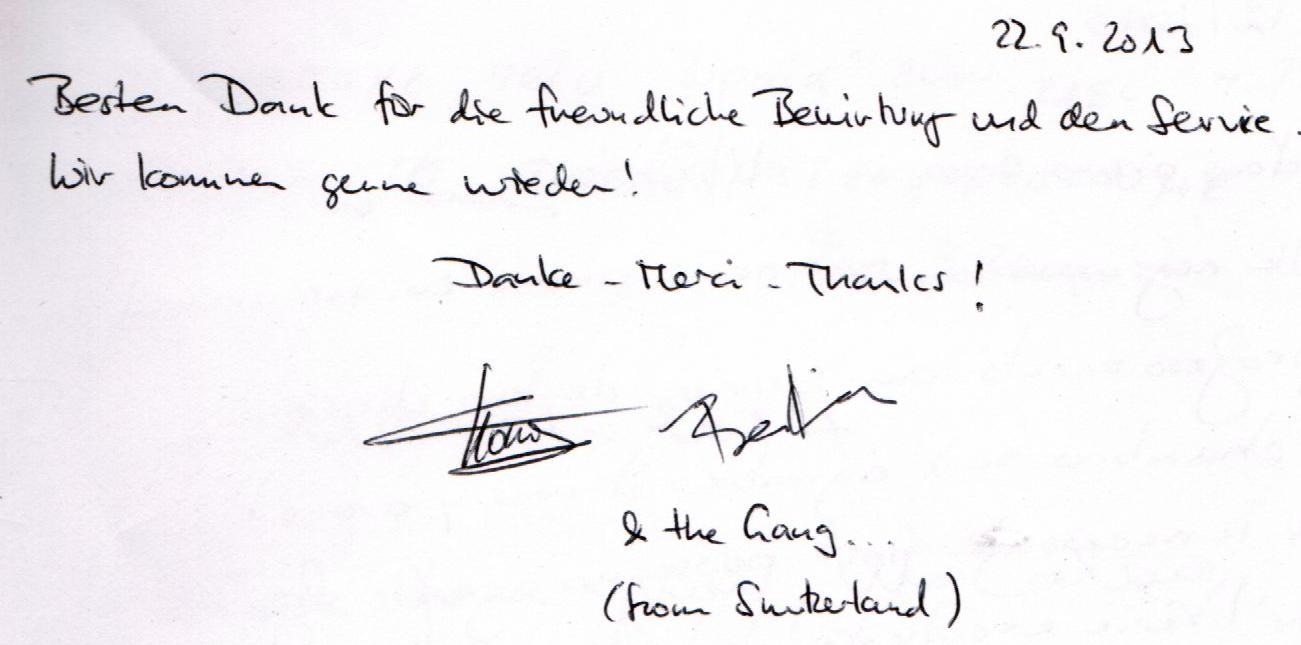 22.9.2013
Besten Dank für die freundliche Bewirtung und den Service.
Wir kommen gerne wieder!
Danke - Merci - Thanks!
& the Gang...
(from Switzerland)